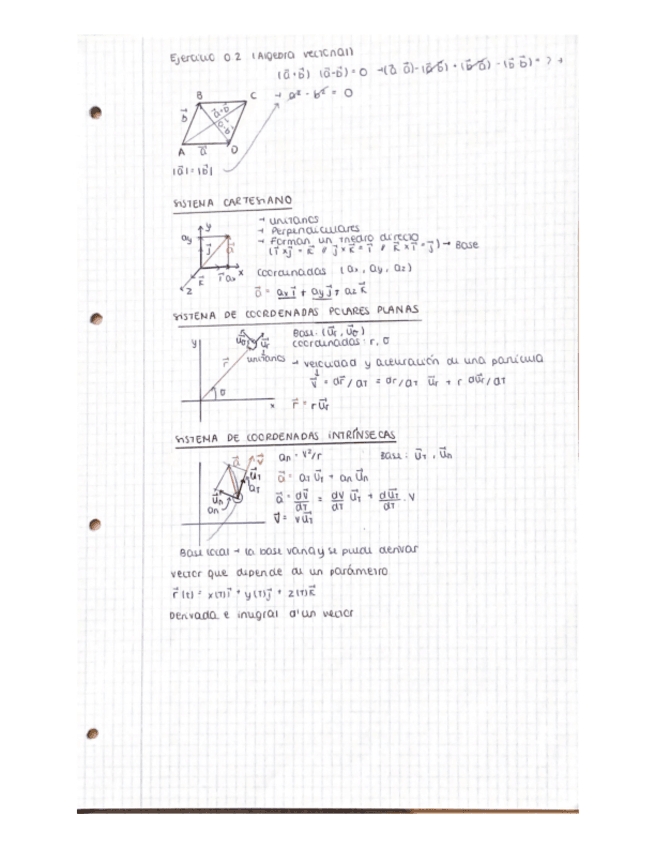 Ejercicio 0.2 (Algebra vectorial)
(a⃗+b⃗) (a⃗-b⃗) = 0 → (a⃗ a⃗) - (a⃗ b⃗) + (b⃗ a⃗) - (b⃗ b⃗) =
→ a² - b² = 0
B C
b⃗ a⃗+b⃗
A a⃗ D
|a⃗| = |b⃗|
SISTEMA CARTESIANO
→ unitarios
→ Perpendiculares
→ Forman un triedro directo
(i⃗ x j⃗ = k⃗ // j⃗ x k⃗ = i⃗ // k⃗ x i⃗ = j⃗) → Base
y
ay j⃗ a⃗
k⃗ i⃗ ax x
z
coordinadas (ax, ay, az)
a⃗ = ax i⃗ + ay j⃗ + az k⃗
SISTEMA DE COORDENADAS POLARES PLANAS
Base: (u⃗r, u⃗σ)
coordinadas: r, σ
y u⃗σ u⃗r
r⃗ unitarios
σ
x
→ velocidad y aceleración de una partícula
v⃗ = dr⃗/dT = dr/dT u⃗r + r du⃗r/dT
r⃗ = r u⃗r
SISTEMA DE COORDENADAS INTRÍNSECAS
an = v²/r Base: u⃗T, u⃗n
a⃗ v⃗
u⃗T
aT
u⃗n
an
a⃗ = aT u⃗T + an u⃗n
a⃗ = dv⃗/dT = dv/dT u⃗T + du⃗T/dT · v
v⃗ = v u⃗T
Base local → la base varia y se puede derivar
vector que depende de un parámetro
r⃗(t) = x(T)i⃗ + y(T)j⃗ + z(T)k⃗
Derivada e integral d'un vector